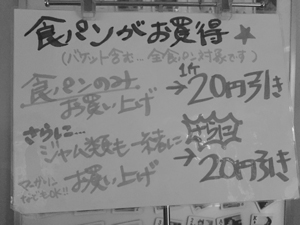 食パンがお買得★
(バゲット含む…全食パン対象です)
食パンのみ
お買い上げ → 1ケ 20円引き
さらに…
ジャム類も一緒に
お買い上げ → 20円引き
マーガリン
なども